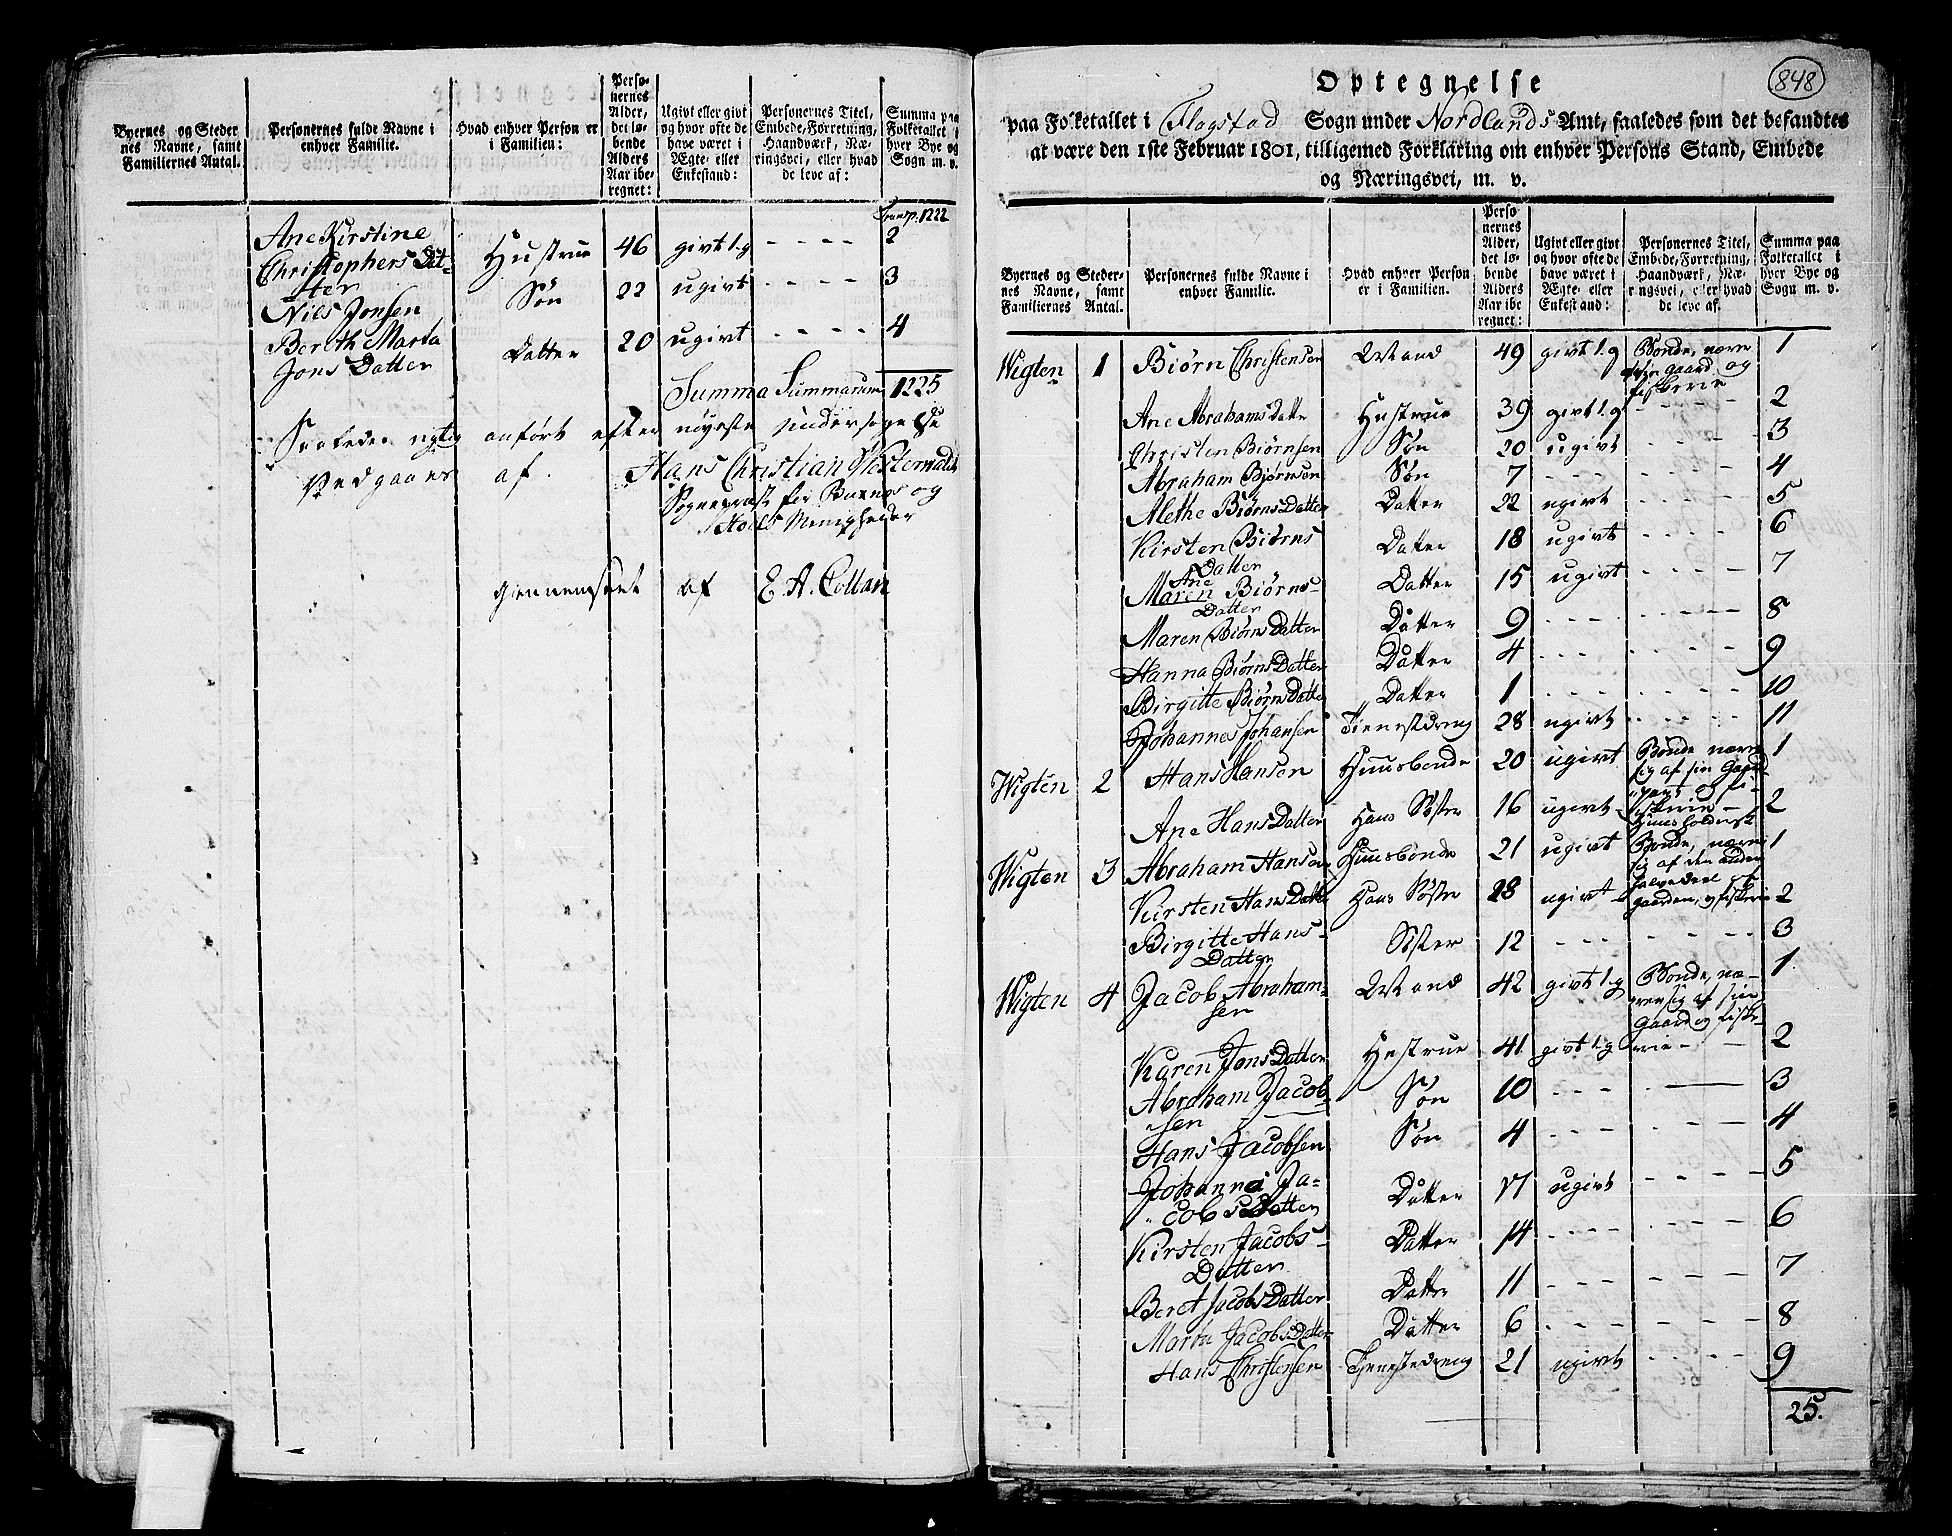 Byernes og Steder Personernes fulde Navne i Hvad enhver Person er Perso- nernes Alder, det lø- bende Alders Aar ibe- regnet: Ugivt eller givt og hvor ofte de have været i Ægte- eller Enkestand: Personernes Titel, Embede, Forretning, Haandværk, Næ- ringsvei, eller hvad de leve af: Summa paa Folketallet i hver Bye og Sogn m. v.
nes Navne, samt enhver Familie. i Familien:
Familiernes Antal.
Transp. 1222
Ane Kirstine
Christophers Dat- Hustrue 46 givt 1.g - - - - 2
ter
Nils Jonsen Søn 22 ugivt - - - - 3
Bereth Marta
Jons Datter Datter 20 ugivt - - - - 4
Summa Summarum 1225
Saaledes rigtig anført efter nøyeste undersøgelse
Vedgaaer af. Hans Christian
Sognepræst for Buxnes og
Hoels Menigheder
giennemseet af E. A. Colban
848
Optegnelse
paa Folketallet i Flagstad Sogn under Nordlands Amt, saaledes som det befandtes
at være den 1ste Februar 1801, tilligemed Forklaring om enhver Persons Stand, Embede
og Næringsvei, m. v.
Byernes og Steder- nes Navne, samt Familiernes Antal. Personernes fulde Navne i enhver Familie. Hvad enhver Person er i Familien. Perso nernes Alder, det lø- bende Alders Aar ibe regnet: Ugivt eller givt og hvor ofte de have været i Ægte- eller Enkestand: Personernes Titel, Embede, Forretning, Haandværk, Næ- ringsvei, eller hvad de leve af. Summa paa Folketallet i hver Bye og Sogn m. v.
Wigten 1 Biørn Christensen Mand 49 givt 1.g Bonde, nære 1
gaard og
fiskerie
Ane Abrahams Datter Hustrue 39 givt 1.g - - - - 2
Christen Biørnsen Søn 20 ugivt - - - - 3
Abraham Bjørnsen Søn 7 - - - - 4
Alethe Biørns Datter Datter 22 ugivt - - - - 5
Kirsten Biørns Datter 18 ugivt - - - - 6
Datter
Ane
Maren Biørns- Datter 15 ugivt - - - - 7
Datter
Maren Biørns Datter Datter 9 - - - - 8
Hanna Biørns Datter Datter 4 - - - - 9
Birgitte Biørns Datter Datter 1 - - - - 10
Johannes Johansen Tienestdreng 28 ugivt - - - - 11
Wigten 2 Hans Hansen Huusbonde 20 ugivt Bonde, nærer 1
sig af sin Gaard-
part og fi-
skerie -
Ane Hans Datter Hans Søster 16 ugivt Huusholderske 2
Wigten 3 Abraham Hansen Huusbonde 21 ugivt Bonde, nærer 1
sig af den anden
halvedeel af
Kirsten Hans Datter Hans Søster 28 ugivt gaarden, og fiskerie 2
Birgitte Hans- Søster 12 - - - - 3
Datter
Wigten 4 Jacob Abraham- Mand 42 givt 1.g Bonde, næ- 1
sen rer sig af sin
Gaard og fiske-
Karen Jons Datter Hustrue 41 givt 1.g rie - - 2
Abraham Jacob- Søn 10 - - - - 3
sen
Hans Jacobsen Søn 4 - - - - 4
Johanna Ja- Datter 17 ugivt - - - - 5
cobs Datter
Kirsten Jacobs- Datter 14 - - - - 6
Datter
Beret Jacobs Datter Datter 11 - - - - 7
Marta Jacobs Datter Datter 6 - - - - 8
Hans Christensen Tienestedreng 21 ugivt - - - - 9
25.